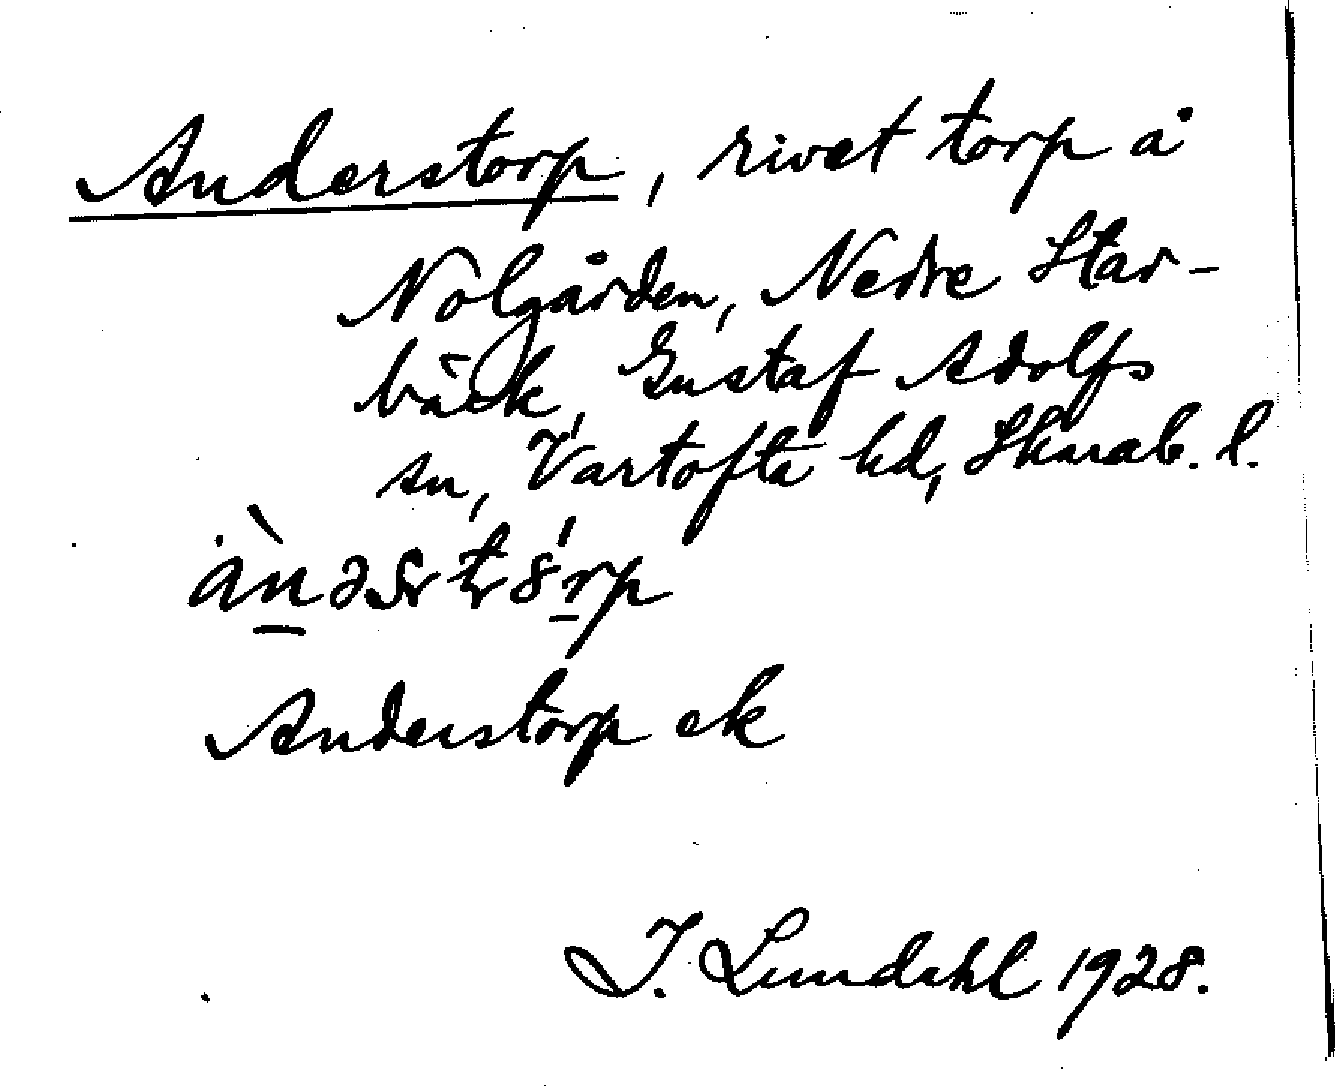 Anderstorp, rivet torp å
Nolgården, Nedre Star-
bäck, Gustaf Adolfs
sn, Vartofta hd, Skarab. l.
Anderstorp ek
I. Lundahl 1928.